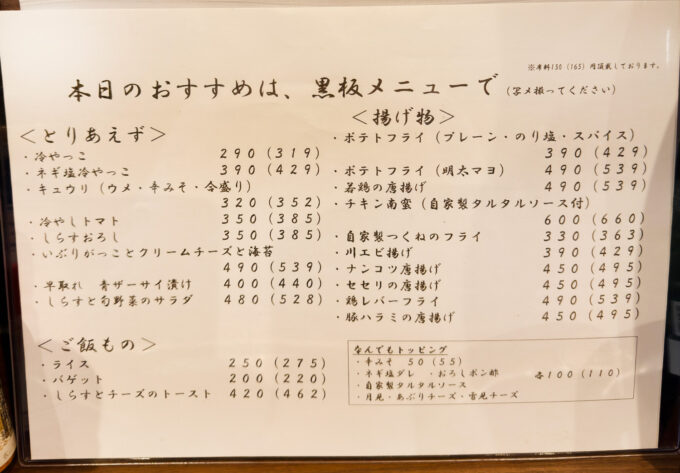 ※席料150（165）円頂戴しております。
本日のおすすめは、黒板メニューで（写メ撮ってください）
＜とりあえず＞
・冷やっこ 290(319)
・ネギ塩冷やっこ 390(429)
・キュウリ（ウメ・辛みそ・合盛り）
320(352)
・冷やしトマト 350(385)
・しらすおろし 350(385)
・いぶりがっことクリームチーズと海苔
490(539)
・早取れ 青ザーサイ漬け 400(440)
・しらすと旬野菜のサラダ 480(528)
＜ご飯もの＞
・ライス 250(275)
・バゲット 200(220)
・しらすとチーズのトースト 420(462)
＜揚げ物＞
・ポテトフライ（プレーン・のり塩・スパイス）
390(429)
・ポテトフライ（明太マヨ） 490(539)
・若鶏の唐揚げ 490(539)
・チキン南蛮（自家製タルタルソース付）
600(660)
・自家製つくねのフライ 330(363)
・川エビ揚げ 390(429)
・ナンコツ唐揚げ 450(495)
・セセリの唐揚げ 450(495)
・鶏レバーフライ 490(539)
・豚ハラミの唐揚げ 450(495)
なんでもトッピング
・辛みそ 50(55)
・ネギ塩ダレ ・おろしポン酢 各100(110)
・自家製タルタルソース
・月見・あぶりチーズ・雪見チーズ